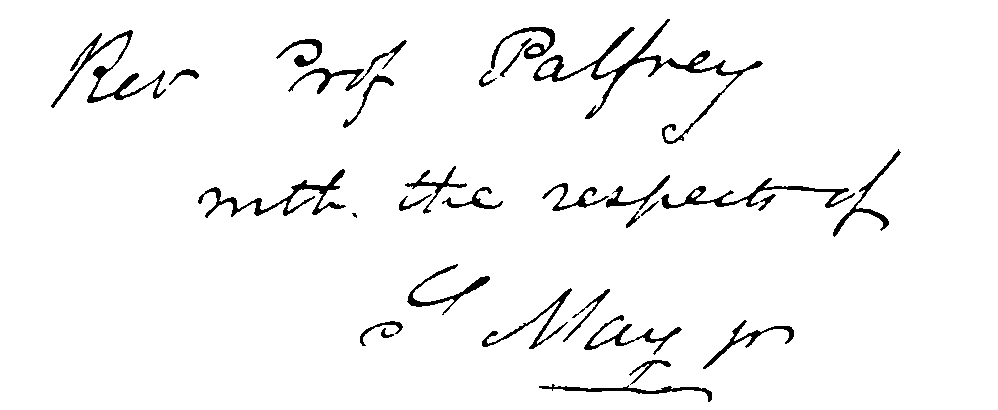 Rev Prof Palfrey
with the respects of
S May jr